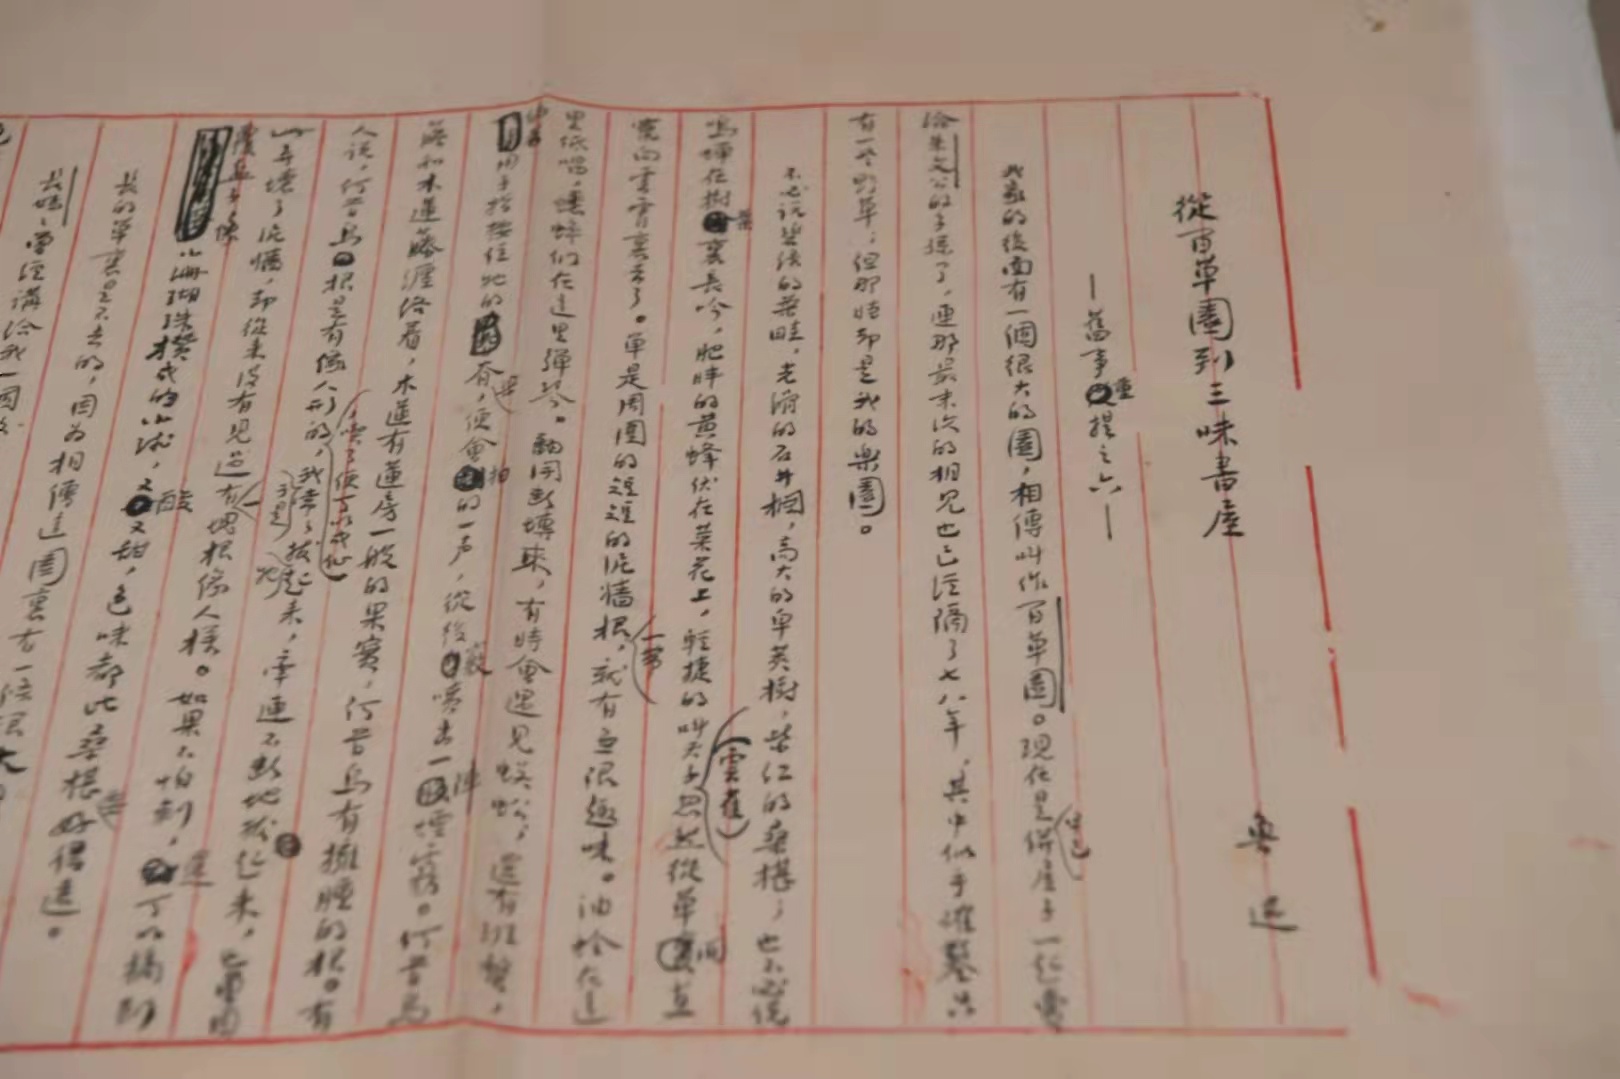 從百草園到三味書屋
魯迅
—舊事重提之六—
我家的後面有一個很大的園，相傳叫作百草園。現在是早已併屋子一起賣
給朱文公的子孫了，連那最末次的相見也已经隔了七八年，其中似乎確鑿只
有一些野草；但那時却是我的樂園。
不必说碧绿的菜畦，光滑的石井欄，高大的皂荚樹，紫红的桑椹；也不必说
鳴蟬在樹葉裏長吟，肥胖的黄蜂伏在菜花上，輕捷的叫天子（雲雀）忽然從草间直
竄向雲霄裏去了。單是周圍的短短的泥牆根一帶，就有無限趣味。油蛉在這
里低唱，蟋蟀们在這里彈琴。翻開断塼來，有時會遇見蜈蚣；還有斑蝥，
倘若用手指按住牠的脊梁，便會拍的一声，從後竅噴出一陣煙霧。何首烏
藤和木蓮藤缠络着，木蓮有蓮房一般的果實，何首烏有擁腫的根。有
人说，何首烏根是有像人形的，吃了便可以成仙，我于是常常拔牠起來，牽連不断地拔起来，也曾因
此弄壞了泥牆，却從来沒有見過有一塊根像人様。如果不怕刺，還可以摘到
覆盆子，像小珊瑚珠攢成的小球，又酸又甜，色味都比桑椹要好得遠。
長的草裏是不去的，因为相傳這園裏有一條很大
長媽媽曾经講给我一個故